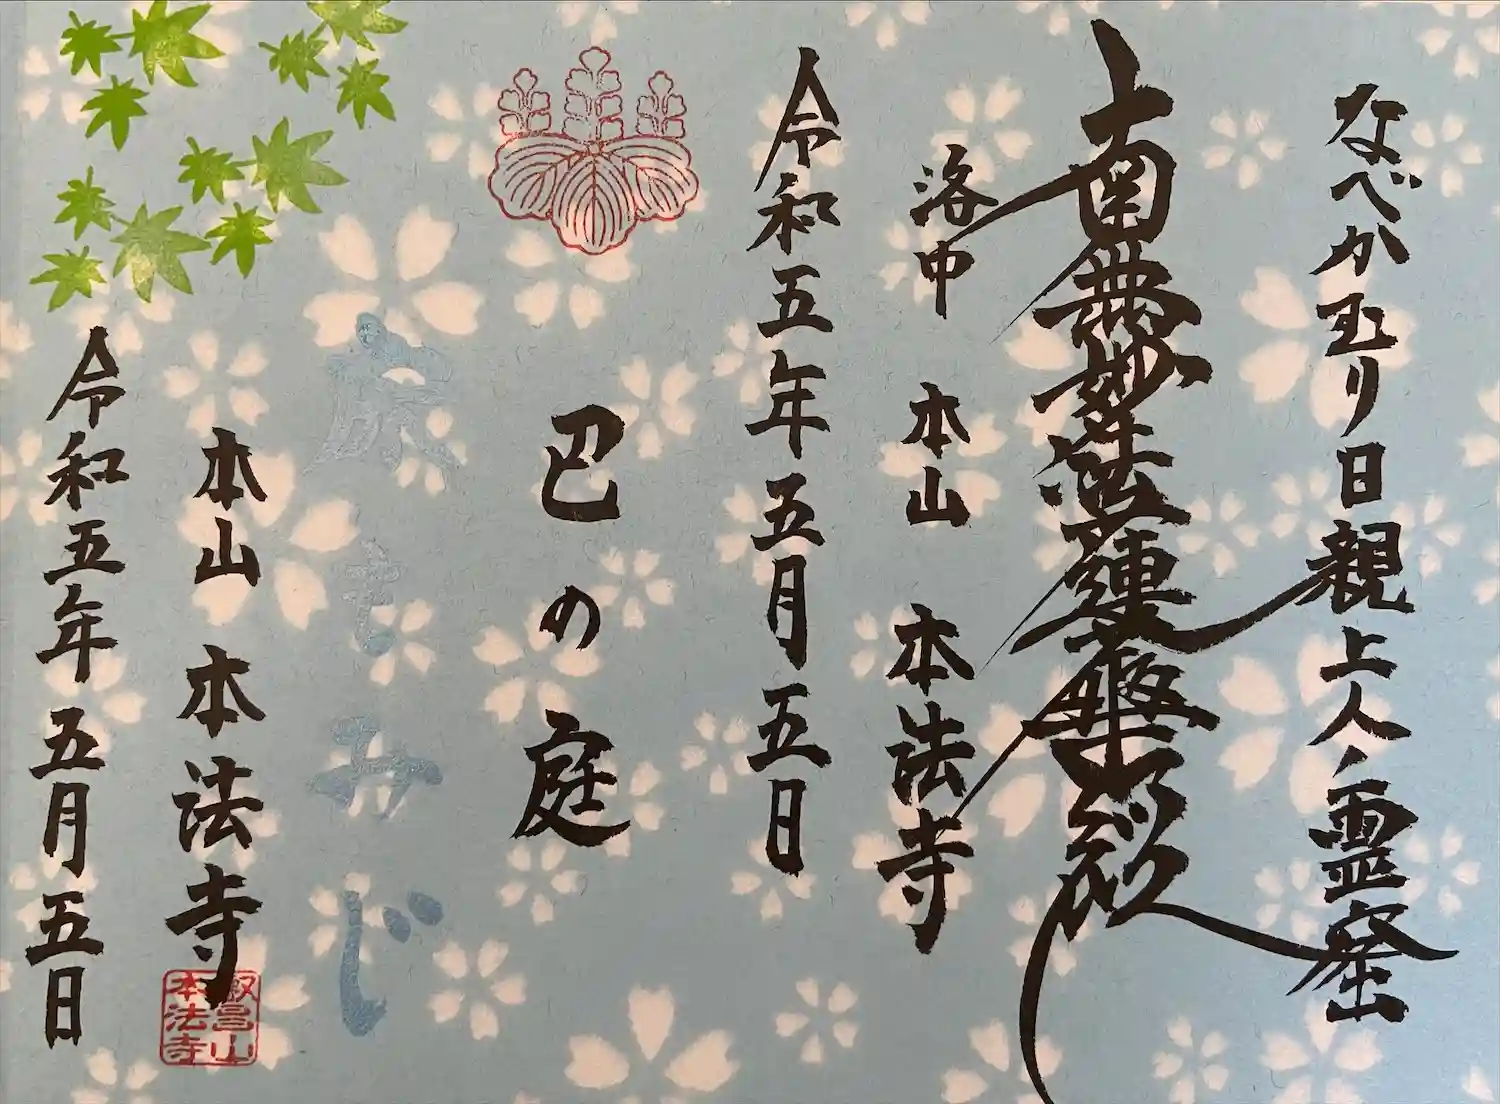 なべかむり日親上人ノ霊窟
南無妙法蓮華経
洛中 本山 本法寺
令和五年五月五日
巴の庭
もみじ
本山 本法寺
叡昌山
本法寺
令和五年五月五日